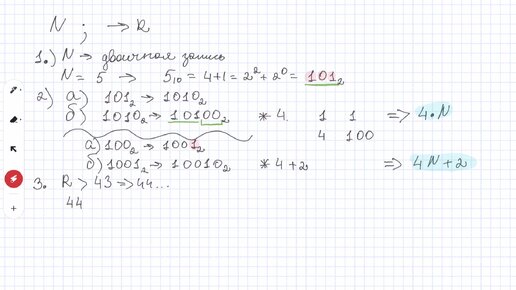 N ; → R
1.) N → двоичная запись
N = 5 → 5₁₀ = 4+1 = 2² + 2⁰ = 101₂
2) а) 101₂ → 1010₂
б) 1010₂ → 10100₂ * 4. 1 1 => 4·N
4 100
а) 100₂ → 1001₂
б) 1001₂ → 10010₂ * 4 + 2 => 4N + 2
3. R > 43 => 44...
44